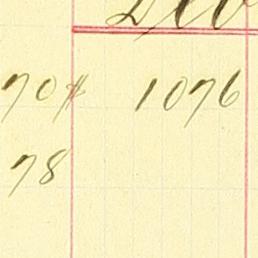 70 $ 1076
78